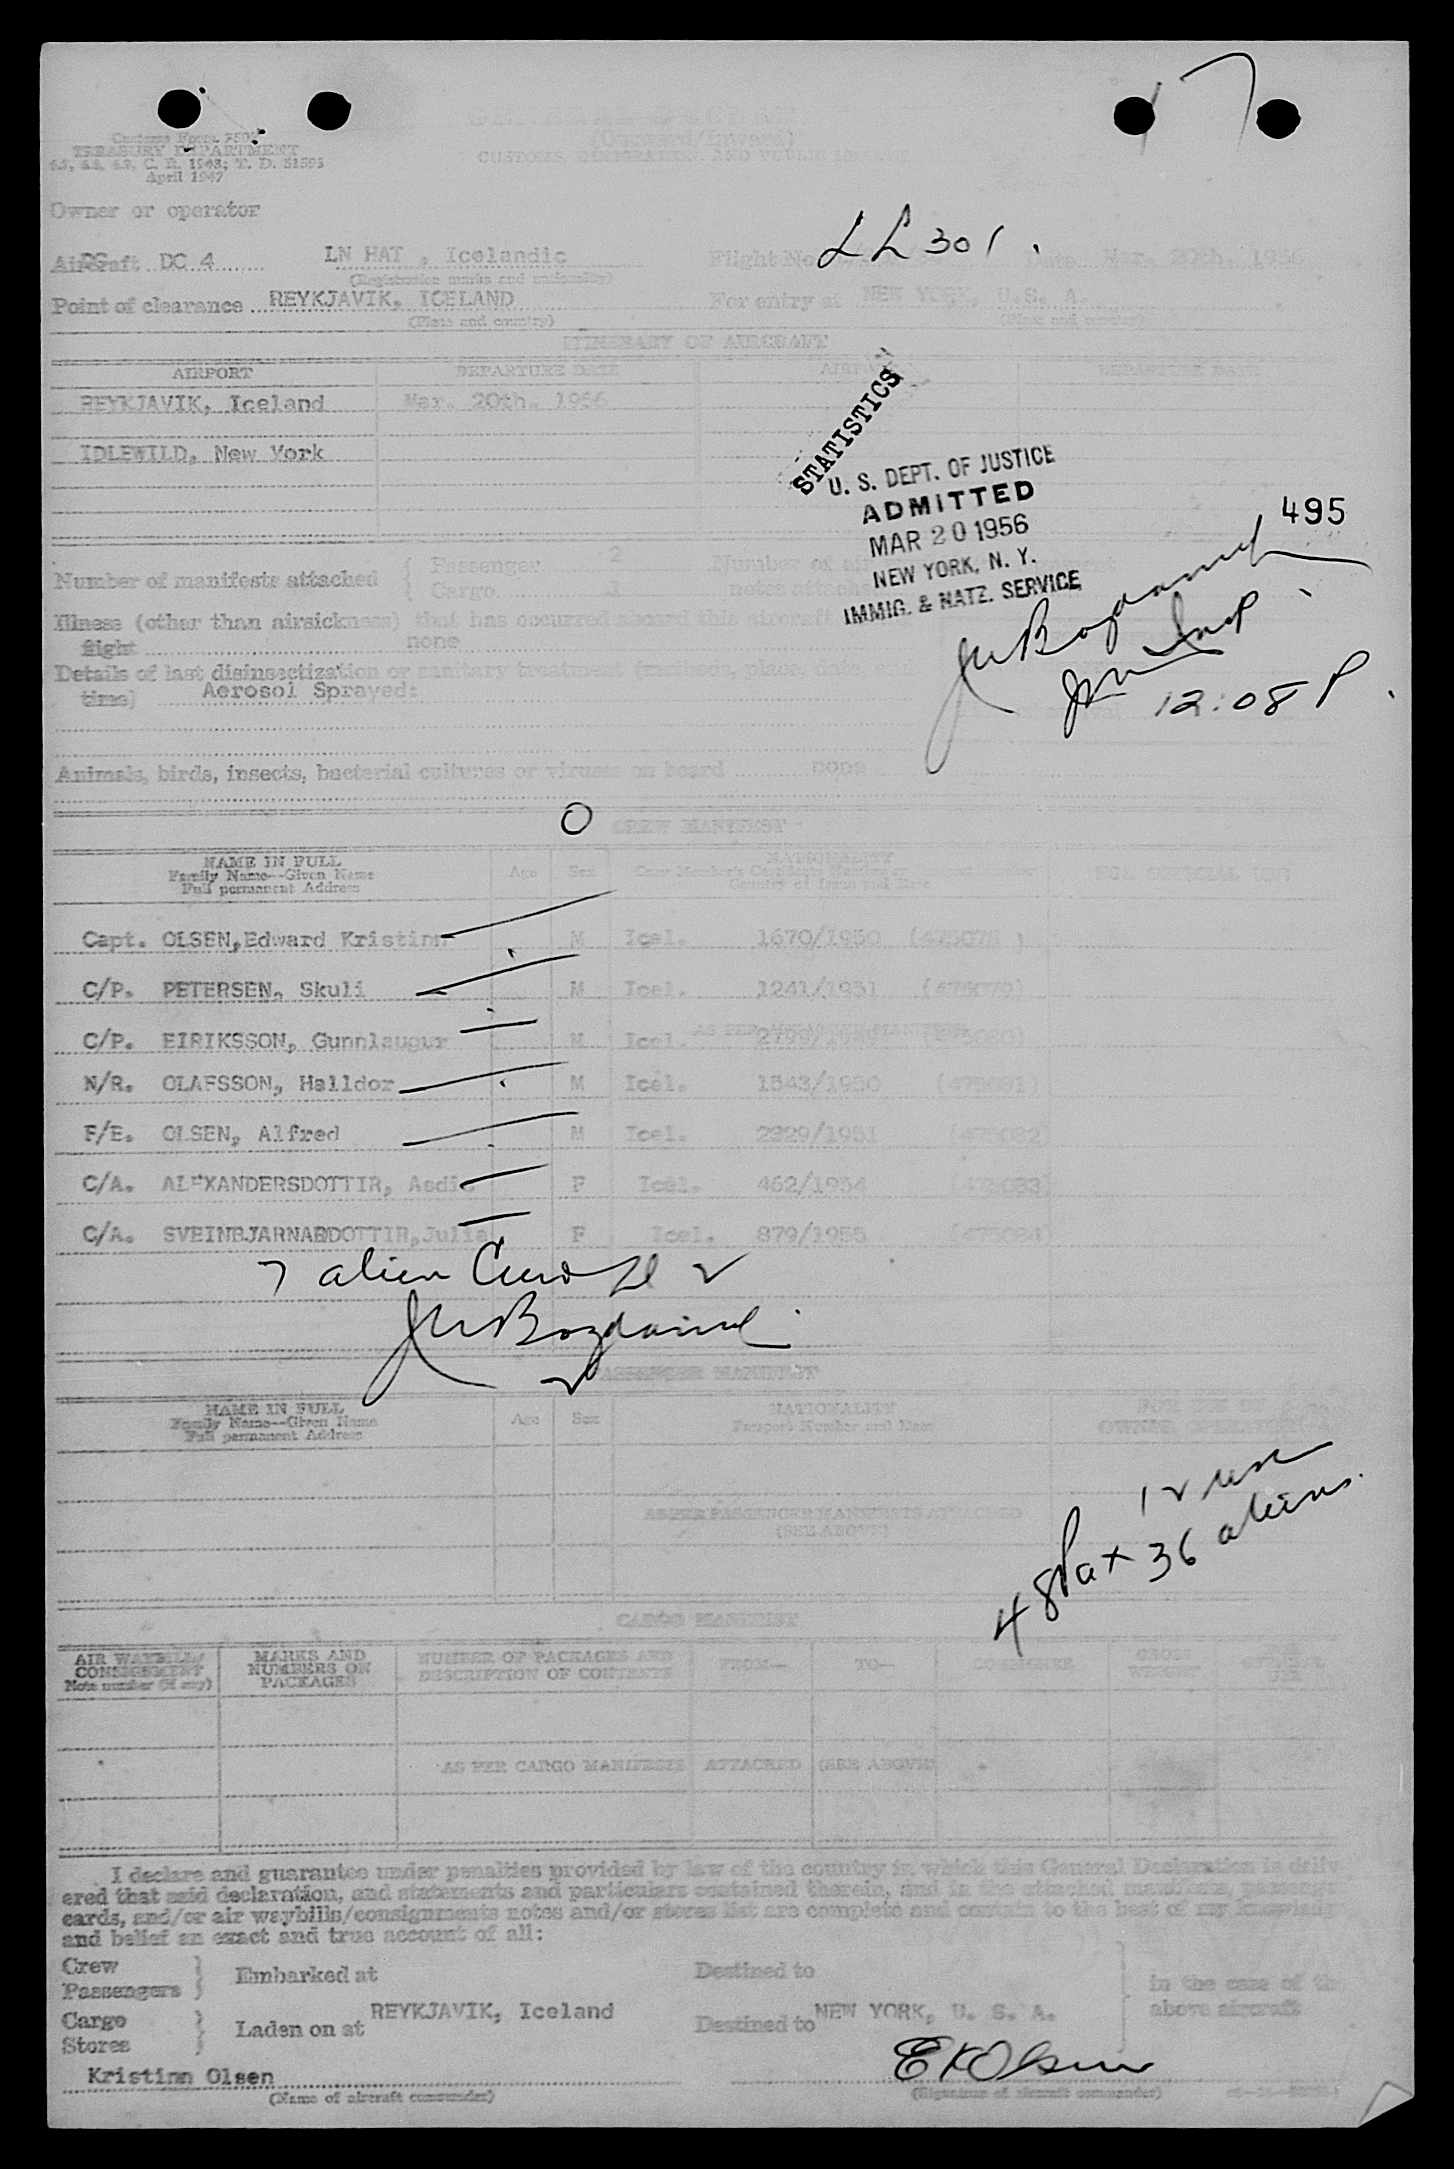 17
GENERAL DECLARATION
(Outward/Inward)
Customs Form 7507
TREASURY DEPARTMENT
CUSTOMS, IMMIGRATION, AND PUBLIC
6.5, 6.8, 6.9, C. R. 1943; T. D. 51595
April 1947
Owner or operator
LL 301.
Aircraft DC 4 LN HAT , Icelandic Flight No. Date Mar. 20th. 1956
(Registration marks and nationality)
Point of clearance REYKJAVIK, ICELAND For entry at NEW YORK, U.S. A.
(Place and country) (Place and country)
ITINERARY OF AIRCRAFT
AIRPORT DEPARTURE DATE AIRPORT DEPARTURE DATE
REYKJAVIK, Iceland Mar. 20th. 1956
IDLEWILD, New York
STATISTICS
U. S. DEPT. OF JUSTICE
ADMITTED
MAR 20 1956
NEW YORK, N. Y.
IMMIG. & NATZ. SERVICE
495
Number of manifests attached { Passenger 2 Number of air
Cargo 1 notes attached
Illness (other than airsickness) that has occurred aboard this aircraft
flight none
Details of last disinsectization or sanitary treatment (methods, place, date,
time) Aerosol Sprayed:
12:08 P.
Animals, birds, insects, bacterial cultures or viruses on board none
O
CREW MANIFEST
NAME IN FULL
Family Name--Given Name
Full permanent Address
Age Sex NATIONALITY
Country of Issue and Date
FOR OFFICIAL USE
Capt. OLSEN,Edward Kristinn M Icel. 1670/1950 (475078)
C/P. PETERSEN, Skuli M Icel. 1241/1951 (475079)
C/P. EIRIKSSON, Gunnlaugur M Icel. (475080)
N/R. OLAFSSON, Halldor M Icel. 1543/1950 (475081)
F/E. OLSEN, Alfred M Icel. 2329/1951 (475082)
C/A. ALEXANDERSDOTTIR, Asdis F Icel. 462/1954 (475083)
C/A. SVEINBJARNARDOTTIR,Julia F Icel. 879/1955 (475084)
7 alien Crew
PASSENGER MANIFEST
NAME IN FULL
Family Name--Given Name
Full permanent Address
Age Sex NATIONALITY
Passport Number and Date
AS PER PASSENGER MANIFESTS ATTACHED
(SEE ABOVE)
12 usc
48 Pax 36 aliens.
CARGO MANIFEST
AIR WAYBILL/
CONSIGNMENT
Note number (if any)
MARKS AND
NUMBERS ON
PACKAGES
NUMBER OF PACKAGES AND
DESCRIPTION OF CONTENTS
FROM— TO— CONSIGNEE GROSS
WEIGHT
AS PER CARGO MANIFESTS ATTACHED (SEE ABOVE)
I declare and guarantee under penalties provided by law of the country in which this General Declaration is deliv
ered that said declaration, and statements and particulars contained therein, and in the attached manifests, passenger
cards, and/or air waybills/consignments notes and/or stores list are complete and contain to the best of my knowledge
and belief an exact and true account of all:
Crew
Passengers } Embarked at Destined to in the case of the
Cargo
Stores } Laden on at REYKJAVIK, Iceland Destined to NEW YORK, U. S. A. above aircraft
Kristinn Olsen EKOlsen
(Name of aircraft commander) (Signature of aircraft commander)